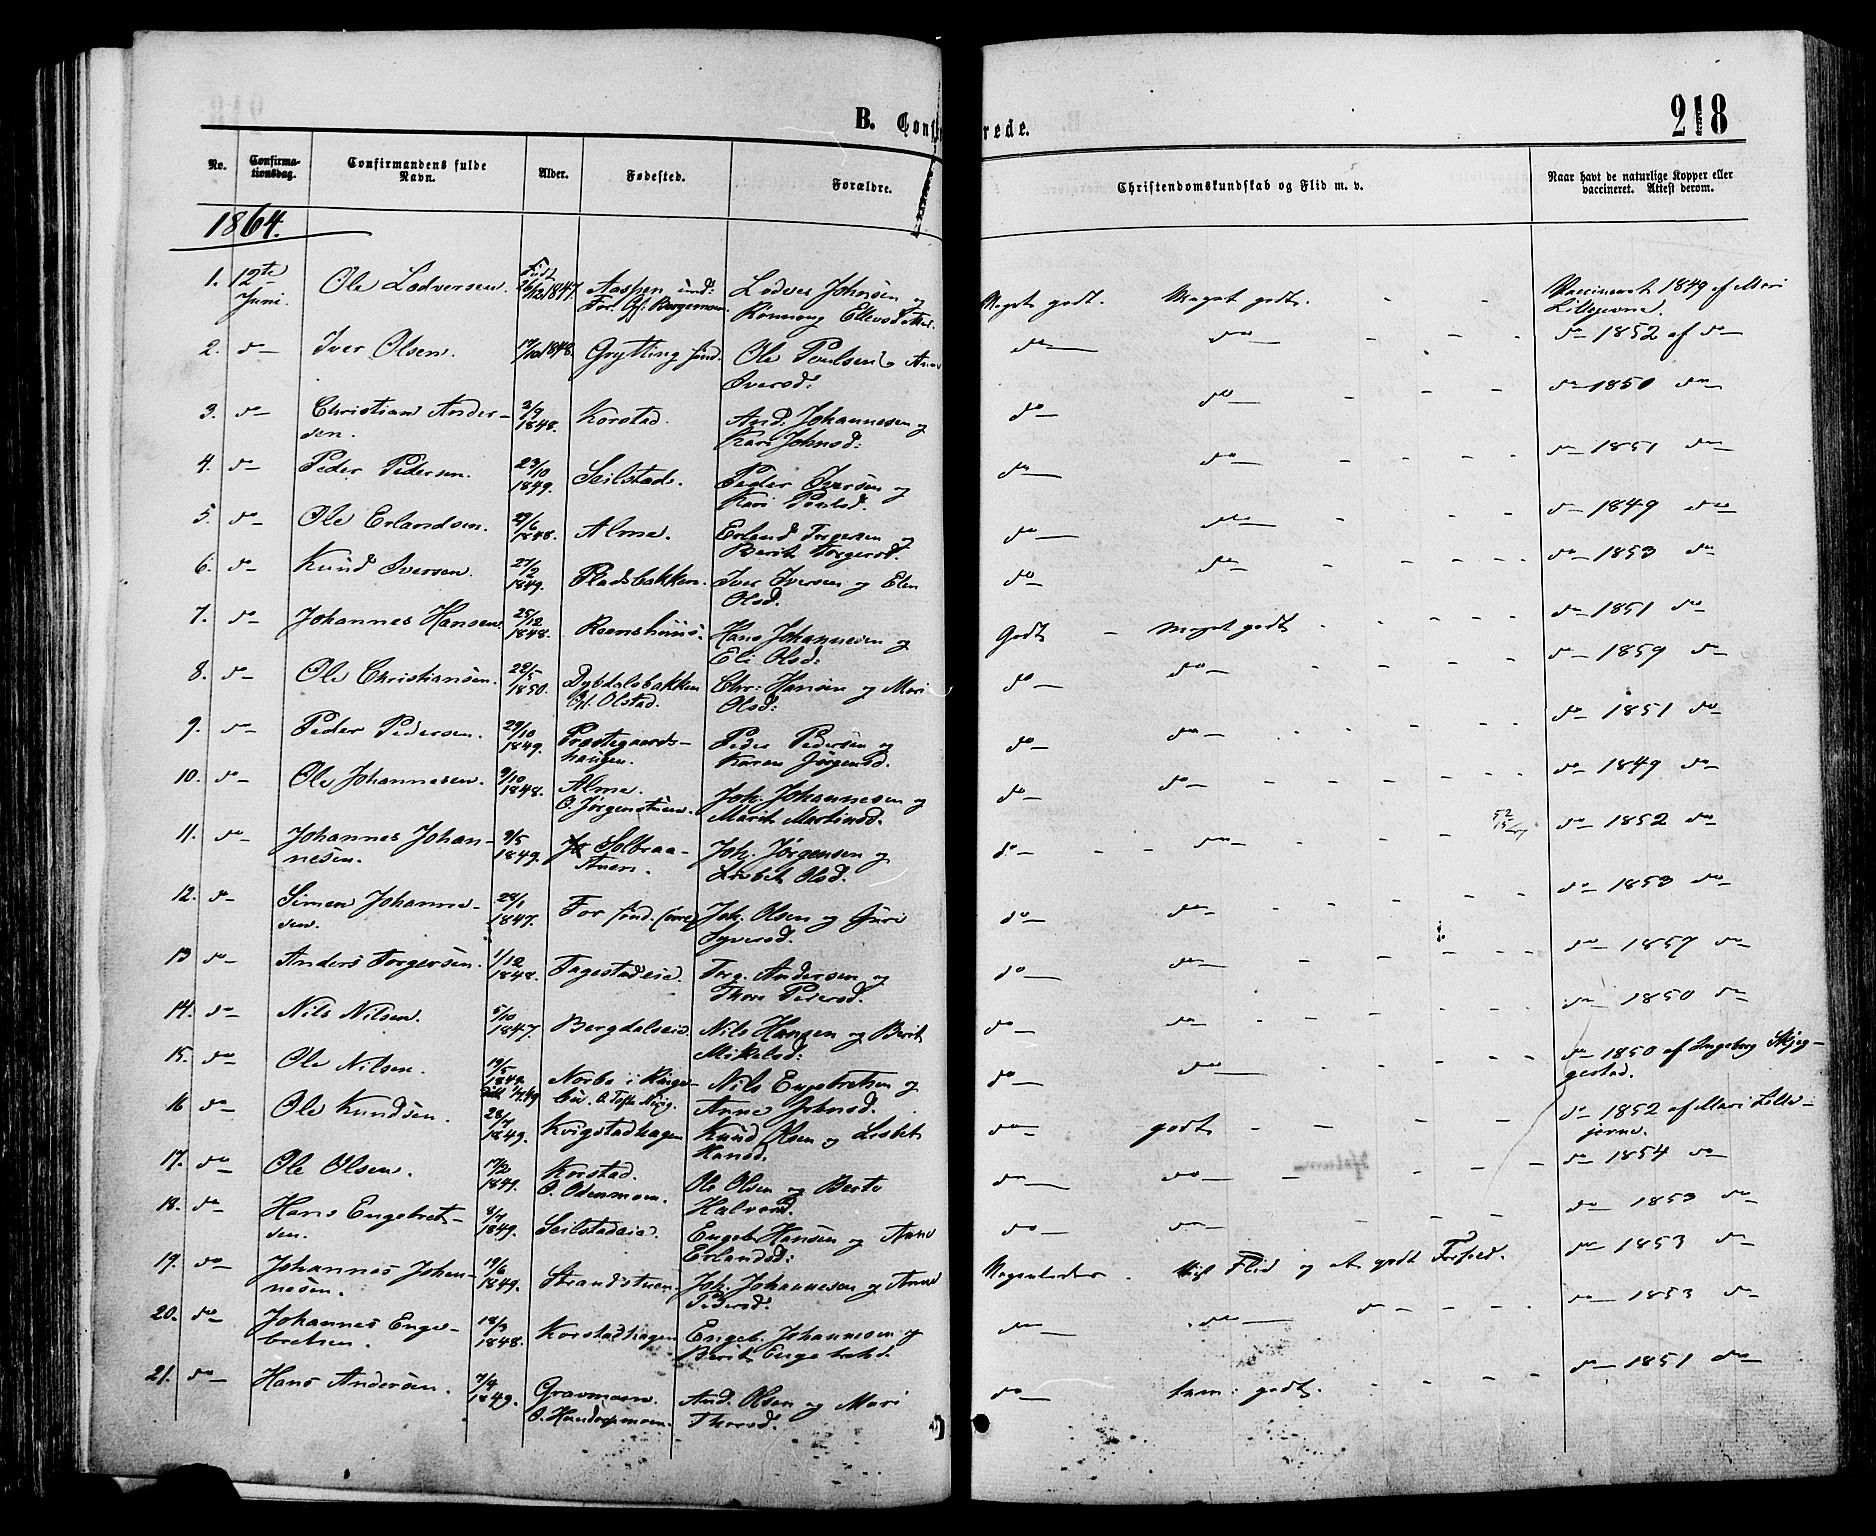 B. Confi rede.
218
No. Confirma- Confirmandens fulde Alder. Fødested. Forældre. Christendomskundskab og Flid m. v. Naar havt de naturlige Kopper eller
tionsdag. Navn. vaccineret. Attest derom.
1864.
1. 12te Ole Lodversen. Født 26/12 1847. Aaspen und: Lodver Johnsen og Meget godt. Meget godt. - - - Vaccineret 1849 af Mari
Juni. For. Rønnaug Ellevsdatter. Lillejerne.
2. do Iver Olsen. 17/10 1848. Grytting sønd. Ole Poulsen o Anne do do - - - do 1852 af do
Iversd:
3. do Christian Ander- 2/9 Korstad. And. Johannesen og do do - - - do 1850 do
sen. 1848. Kari Johnsd:
4. do Peder Pedersen. 29/10 Seilstad. Peder Iversen og do do - - - - do 1851 do
1849. Kari
5. do Ole Erlandsen. 29/6 Alme. Erland Torgersen og do do - - - do 1849 do
1848. Berit Torgersd.
6. do Knud Iversen. 27/2 Pladsbakken. Iver Iversen og Elen do do - - - - do 1853 do
1849. Olsd.
7. do Johannes Hansen 25/12 Roenshuus. Hans Johannesen og Godt - Meget godt. - - - - do 1851 do
1848. Eli Olsd:
8. do Ole Christiansen. 22/5 Dybdalsbakken Chr: Hansen og Mari do do - - - - do 1859 do
1850. Olstad. Olsd:
9. do Peder Pedersen. 29/10 Præstegaards- Peder Pedersen og do do - - - - do 1851 do
1849. haugen. Karen Jørgensd.
10. do Ole Johannesen 9/10 Alme. Joh. Johannesen og do do - - - - - do 1849 do
1848. O. Jørgenstuen. Marit Martinsd.
11. do Johannes Johan- 9/5 Solbraa- Joh. Jørgensen og do - - do - - - do 1852 do
nesen. 1849. stuen. Lisbet Olsd.
12. do Simen Johanne- 28/1 For sønd. Joh. Olsen og Guri do do - - - - - do 1853 do
sen. 1847. Syversd.
13 do Anders Torgersen. 1/12 Fagestadeie. Torg. Andersen og do do - - - - - do 1857 do
1848. Thore Pedersd.
14. do Nils Nilsen. 5/10 Bergdalseie Nils Hansen og Berit do do - - - - - do 1850 do
1847. Mikelsd:
15. do Ole Nilsen. 19/5 Norbo i Ringe- Nils Engebretsen og do do - - - - do 1850 af Ingeborg Skjeg-
1849. bu. Anne Johnsd. gestad.
16 do Ole Knudsen. 28/7 Kvigstadhagen Knud Olsen og Lisbet do godt - - - - do 1852 af Mari Lille-
1849. Hansd. jerne.
17. do Ole Olsen. 17/2 Korstad. Ole Olsen og Berte do do - - - - do 1854 do
1849. O. Odenmoen. Halvorsd.
18. do Hans Engebret- 8/7 Seilstadeie. Engeb. Hansen og Anne do do - - - do 1853 do
sen. 1849. Erlandsd:
19. do Johannes Johan- 19/6 Strandstuen Joh. Johannesen og Anne Meget . Flid og et godt Forhold. do 1853 do
nesen. 1849. Pedersd.
20. do Johannes Enge- 18/3 Korstadhagen Engeb. Johannesen og do do do - - - do 1853 do
bretsen. 1848. Berit Engebretsd.
21. do Hans Andersen. 7/4 Gravmoen. And. Olsen og Mari do tem: godt. - - - - do 1851 do
1849. O. Thorsd.